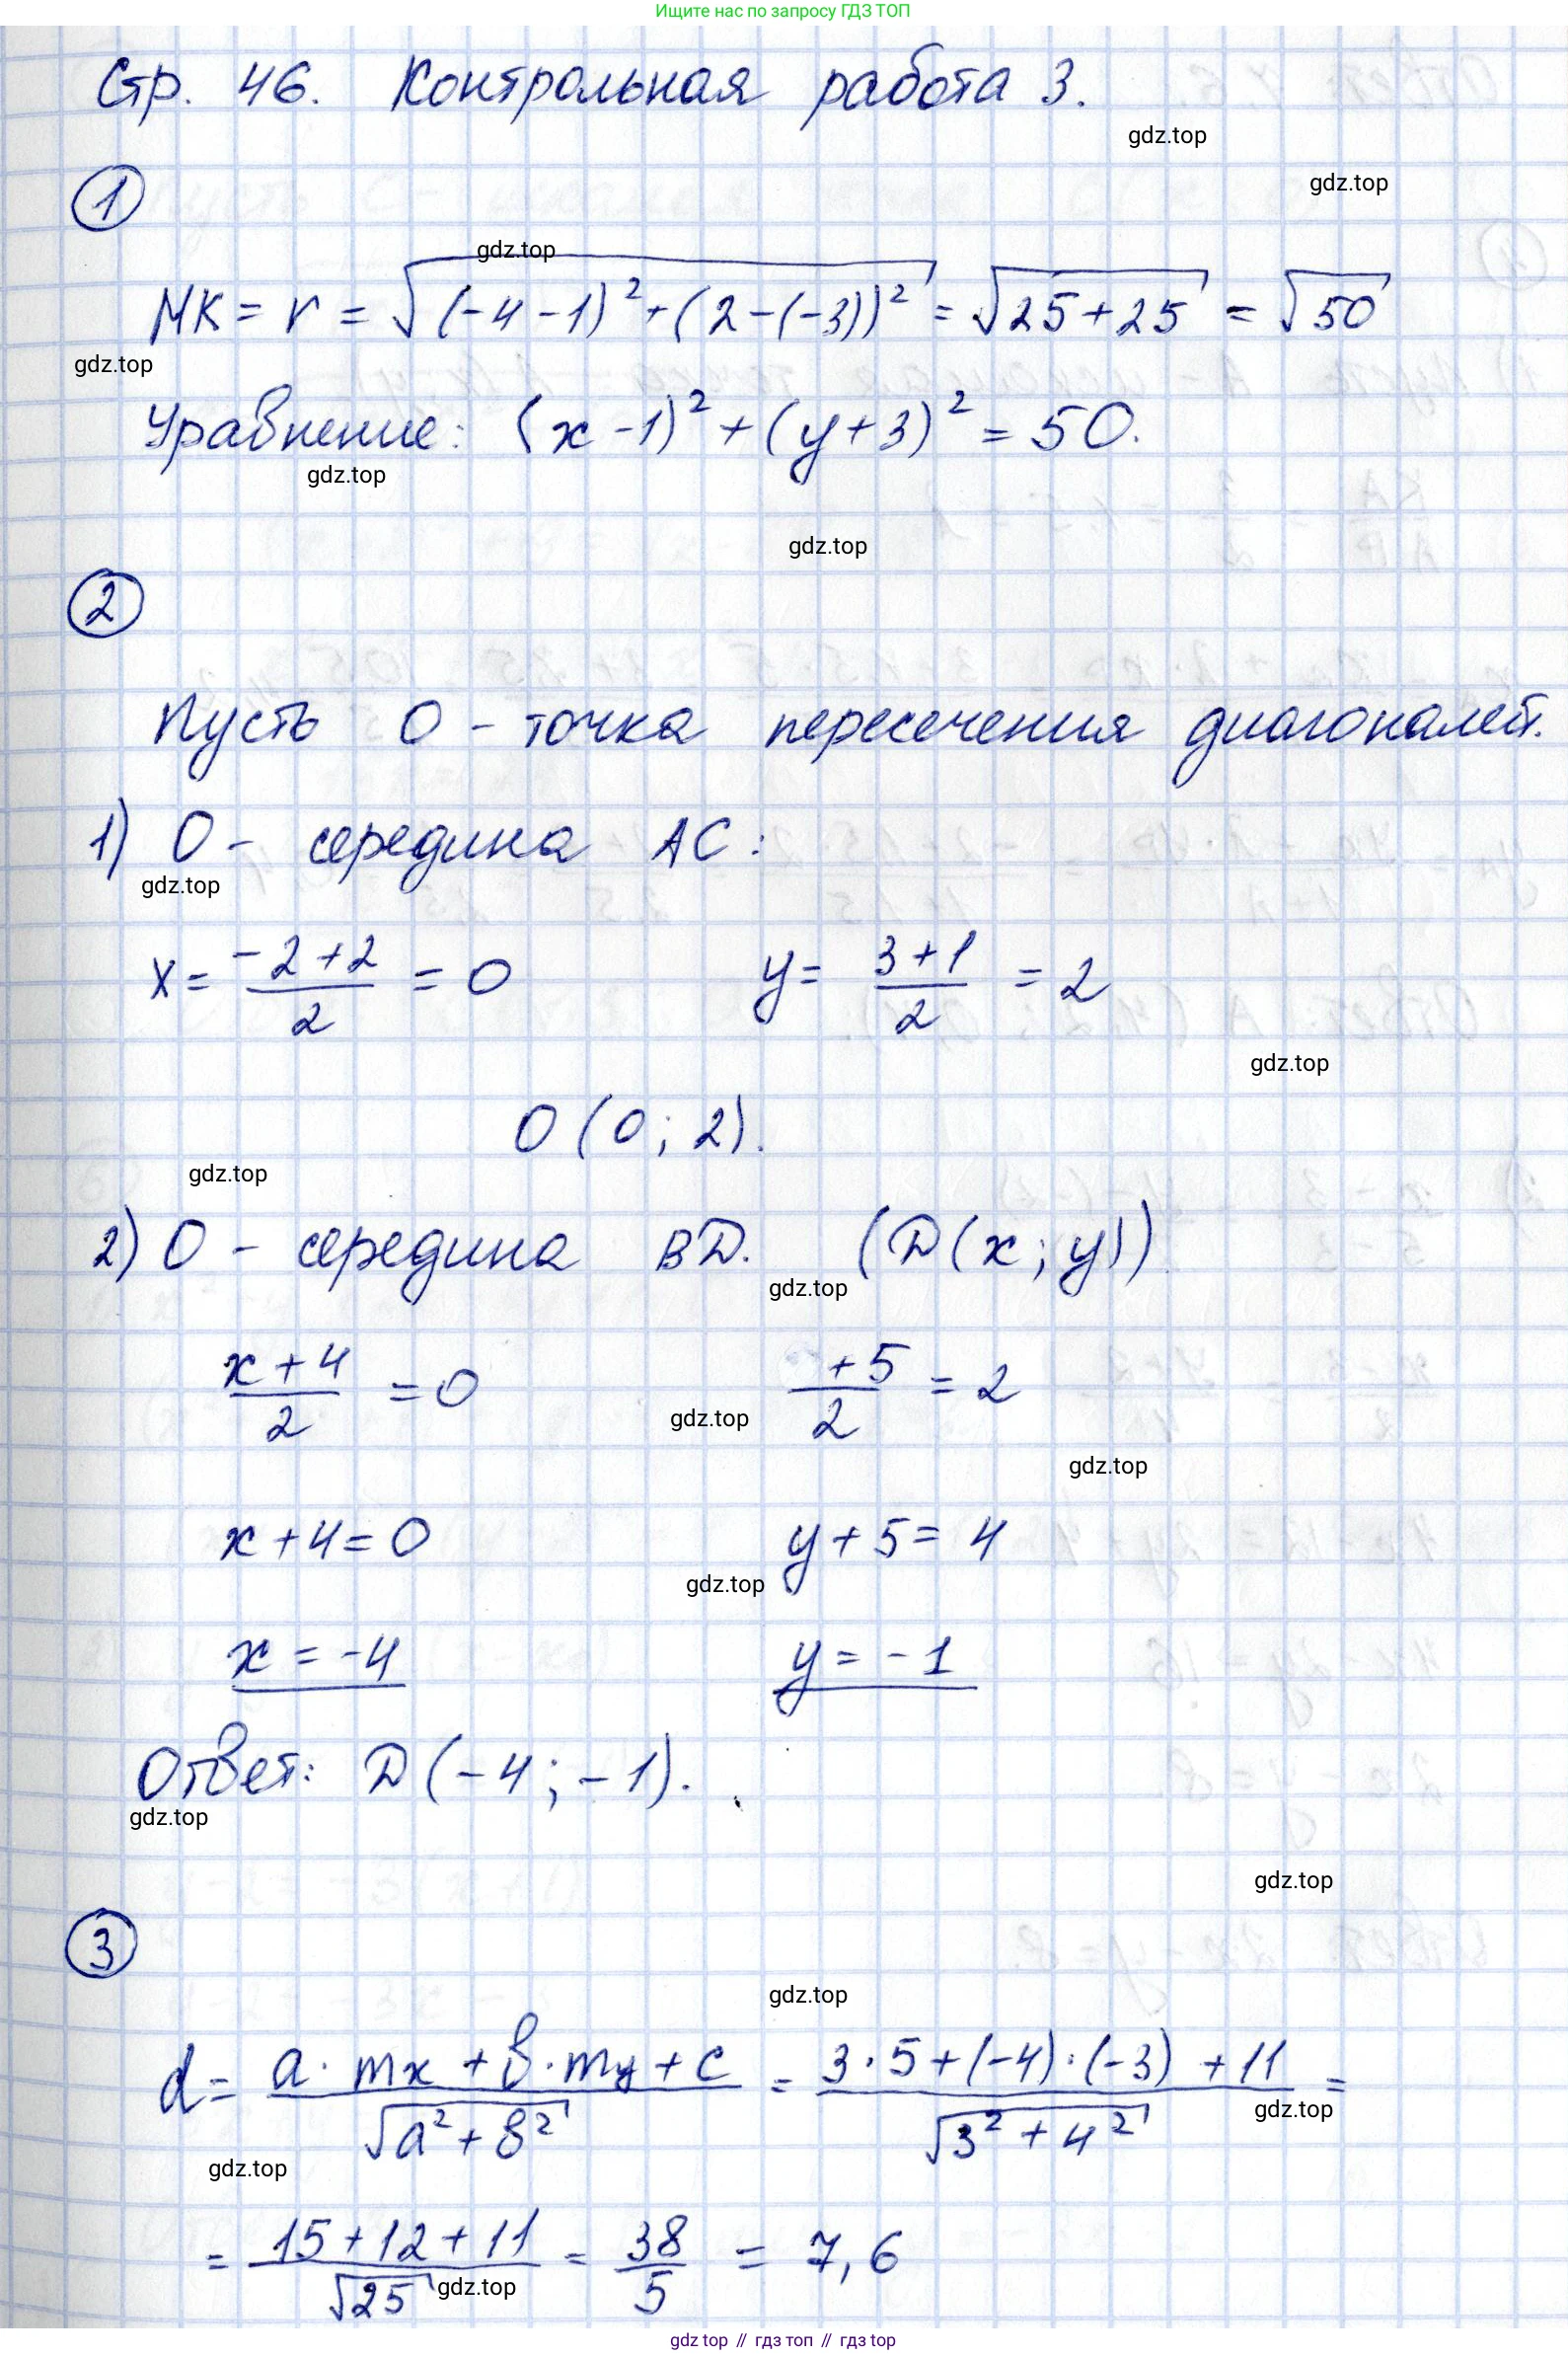 Ищите нас по запросу ГДЗ ТОП
Стр. 46. Контрольная работа 3.
gdz.top
gdz.top
1
gdz.top
MK = r = √((-4-1)² + (2-(-3))²) = √(25+25) = √50
gdz.top
Уравнение: (x-1)² + (y+3)² = 50.
gdz.top
gdz.top
2
Пусть O - точка пересечения диагоналей.
1) O - середина AC:
gdz.top
x = (-2+2)/2 = 0 y = (3+1)/2 = 2
gdz.top
O (0; 2).
gdz.top
2) O - середина BD. (D(x; y))
gdz.top
(x+4)/2 = 0 (+5)/2 = 2
gdz.top
gdz.top
x+4=0 y+5=4
gdz.top
x = -4 y = -1
Ответ: D(-4; -1).
gdz.top
gdz.top
3
gdz.top
d = (a·mx + b·my + c)/√(a²+b²) = (3·5+(-4)·(-3)+11)/√(3²+4²) =
gdz.top
gdz.top
= (15+12+11)/√25 = 38/5 = 7,6
gdz.top
gdz top // гдз топ // гдз top